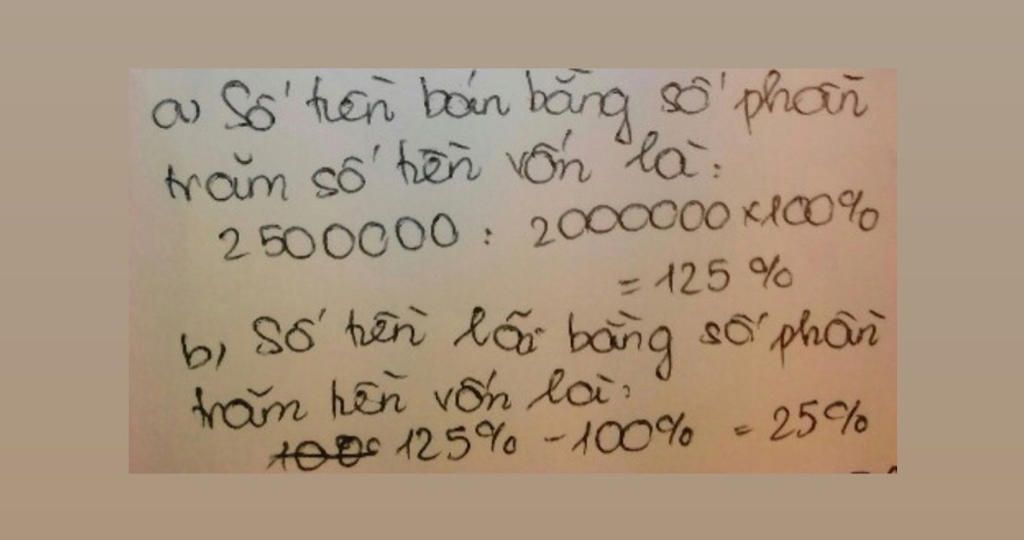 a) Số tiền bán bằng số phần
trăm số tiền vốn là:
2500000 : 2000000 x 100%
= 125 %
b) Số tiền lãi bằng số phần
trăm tiền vốn là:
125% - 100% = 25%